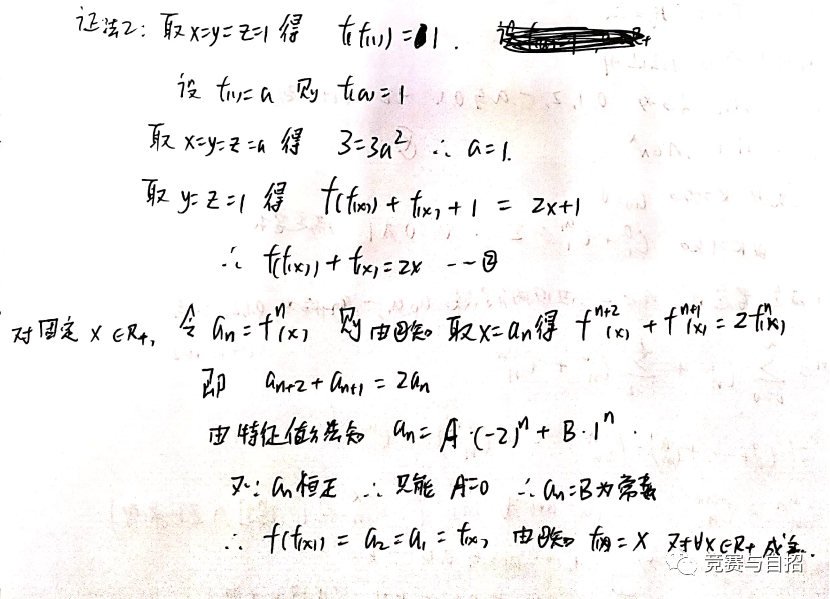 证法2: 取x=y=z=1 得 f(f(1))=1.
设 f(1)=a 则 f(a)=1
取 x=y=z=a 得 3=3a² ∴ a=1.
取 y=z=1 得 f(f(x))+f(x)+1 = 2x+1
∴ f(f(x))+f(x)=2x --②
对固定 x∈R₊, 令 aₙ=fⁿ(x) 则由②知 取x=aₙ得 fⁿ⁺²(x)+fⁿ⁺¹(x)=2fⁿ(x)
即 aₙ₊₂+aₙ₊₁=2aₙ
由特征值方法知 aₙ=A·(-2)ⁿ+B·1ⁿ.
又∵ aₙ恒正 ∴ 只能 A=0 ∴aₙ=B为常数
∴ f(f(x))=a₂=a₁=f(x) 由②知 f(x)=x 对∀x∈R₊成立.
竞赛与自招